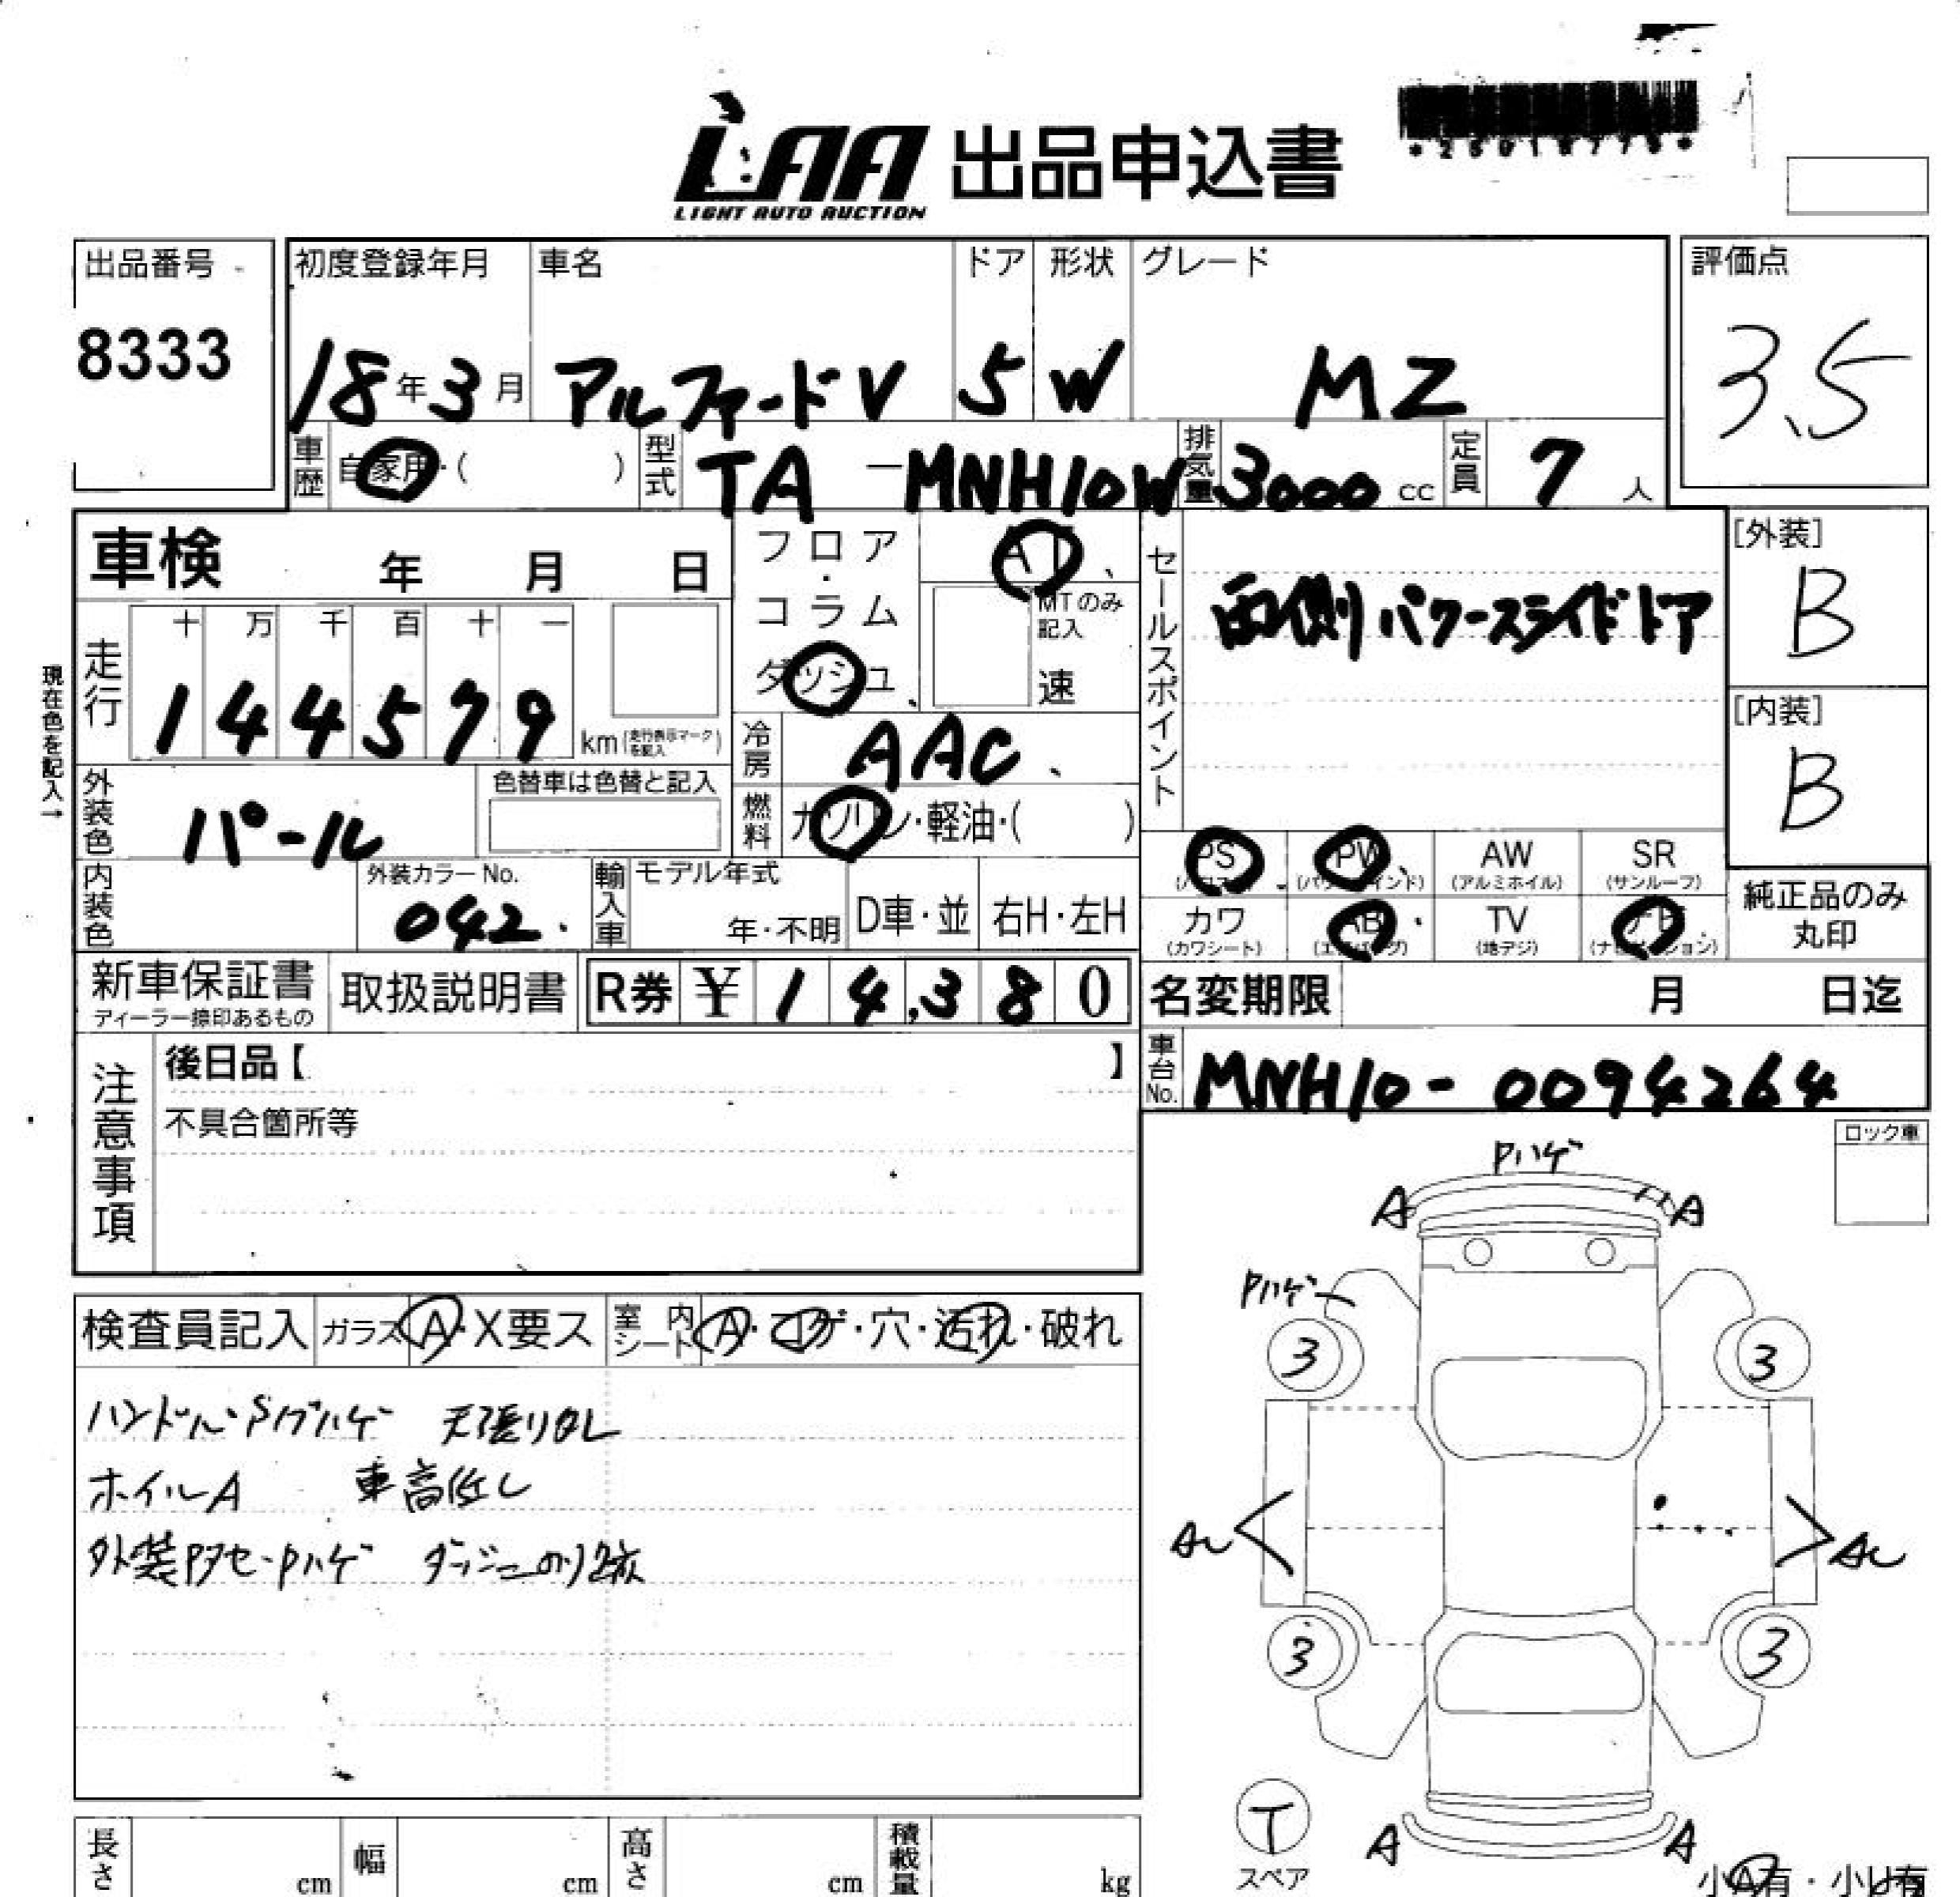 LAA 出品申込書
LIGHT AUTO AUCTION
出品番号
8333
初度登録年月
18年3月
車名
アルファードV
ドア
5
形状
W
グレード
MZ
評価点
3.5
車歴 自家用・( )
型式 TA-MNH10W
排気量 3000 cc
定員 7 人
車検 年 月 日
フロア・コラム
ダッシュ
AT
MTのみ記入
速
セールスポイント
両側パワースライドドア
[外装]
B
[内装]
B
走行
十 万 千 百 十 一
1 4 4 5 7 9 km(走行表示マークを記入)
現在色を記入→
冷房 AAC
燃料 ガソリン・軽油・( )
外装色 パール
色替車は色替と記入
内装色
外装カラーNo.
042
輸入車
モデル年式
年・不明
D車・並
右H・左H
PS
PW
AW (アルミホイル)
SR (サンルーフ)
カワ (カワシート)
AB
TV (地デジ)
ナビ
純正品のみ丸印
新車保証書
ディーラー捺印あるもの
取扱説明書
R券 ¥14,380
名変期限 月 日迄
車台No. MNH10-0094264
注意事項
後日品【 】
不具合箇所等
ロック車
Pハゲ
A A
Pハゲ
3 3
3 3
T
スペア
A A
小A有・小U有
検査員記入
ガラス A・X要ス
室内シート A・コゲ・穴・汚れ・破れ
天張りタレ
ホイルA 車高低し
長さ cm
幅 cm
高さ cm
積載量 kg